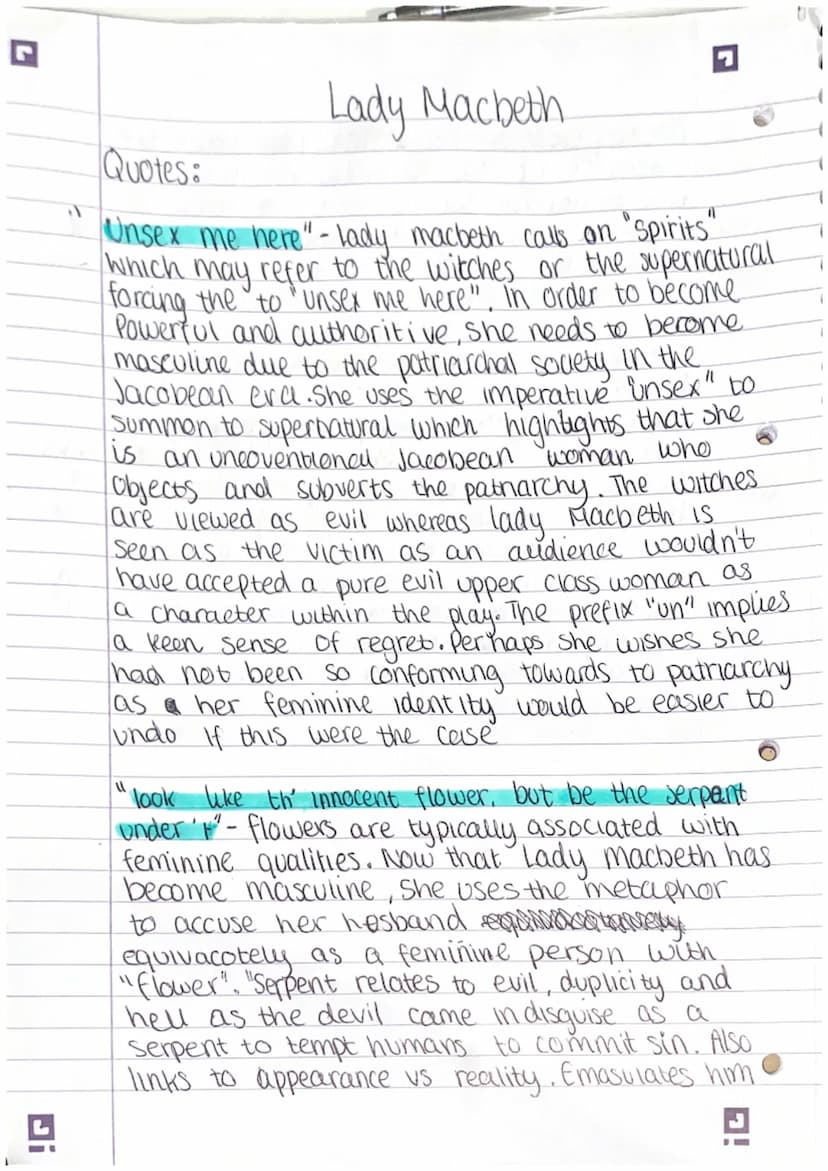 Lady Macbeth
Quotes:
"Unsex me here" - lady macbeth calls on "spirits"
which may refer to the witches or the supernatural
forcing the to "unsex me here". In order to become
Powerful and authoritive, she needs to become
masculine due to the patriarchal society in the
Jacobean era. She uses the imperative "unsex" to
summon to supernatural which highlights that she
is an uncoventional Jacobean woman who
Objects and subverts the patriarchy. The witches
are viewed as evil whereas lady Macbeth is
seen as the victim as an audience wouldn't
have accepted a pure evil upper class woman as
a character within the play. The prefix "un" implies
a keen sense of regret. Perhaps she wishes she
had not been so conforming towards to patriarchy
as her feminine identity would be easier to
undo if this were the case
"look like th' innocent flower, but be the serpent
under 't" - flowers are typically associated with
feminine qualities. Now that Lady macbeth has
become masculine, she uses the metaphor
to accuse her hosband
equivacotely as a feminine person with
"flower". "Serpent relates to evil, duplicity and
hell as the devil came in disguise as a
serpent to tempt humans to commit sin. Also
links to appearance vs reality. Emasulates him